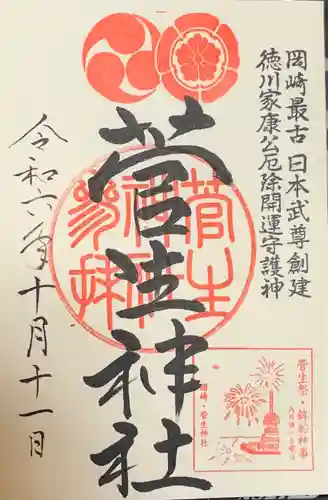 岡崎最古 日本武尊創建
徳川家康公厄除開運守護神
菅生神社
菅生神社
参拝
令和六年十月十一日
菅生祭・鉾船神事
岡崎・菅生神社